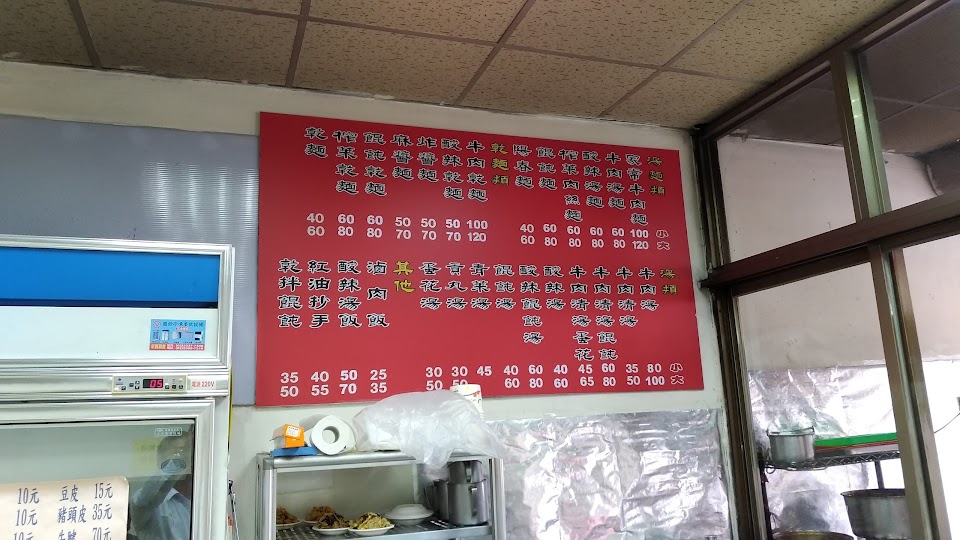 湯麵類
家常牛肉麵 100 120
牛肉湯麵 60 80
酸辣湯麵 60 80
榨菜肉絲麵 60 80
餛飩麵 60 80
陽春麵 40 60
小
大
乾麵類
牛肉乾麵 100 120
酸辣乾麵 50 70
炸醬麵 50 70
麻醬麵 50 70
餛飩乾麵 60 80
榨菜乾麵 60 80
乾麵 40 60
湯類
牛肉湯 80 100
牛肉清湯 35 50
牛肉清湯餛飩 60 80
牛肉清湯蛋花 45 65
酸辣湯 40 60
酸辣餛飩湯 60 80
餛飩湯 40 60
青菜湯 45
貢丸湯 30 50
蛋花湯 30 50
小
大
其他
滷肉飯 25 35
酸辣湯飯 50 70
紅油抄手 40 55
乾拌餛飩 35 50
05
電源 220V
10元 豆皮 15元
10元 豬頭皮 35元
10元 牛腱 70元